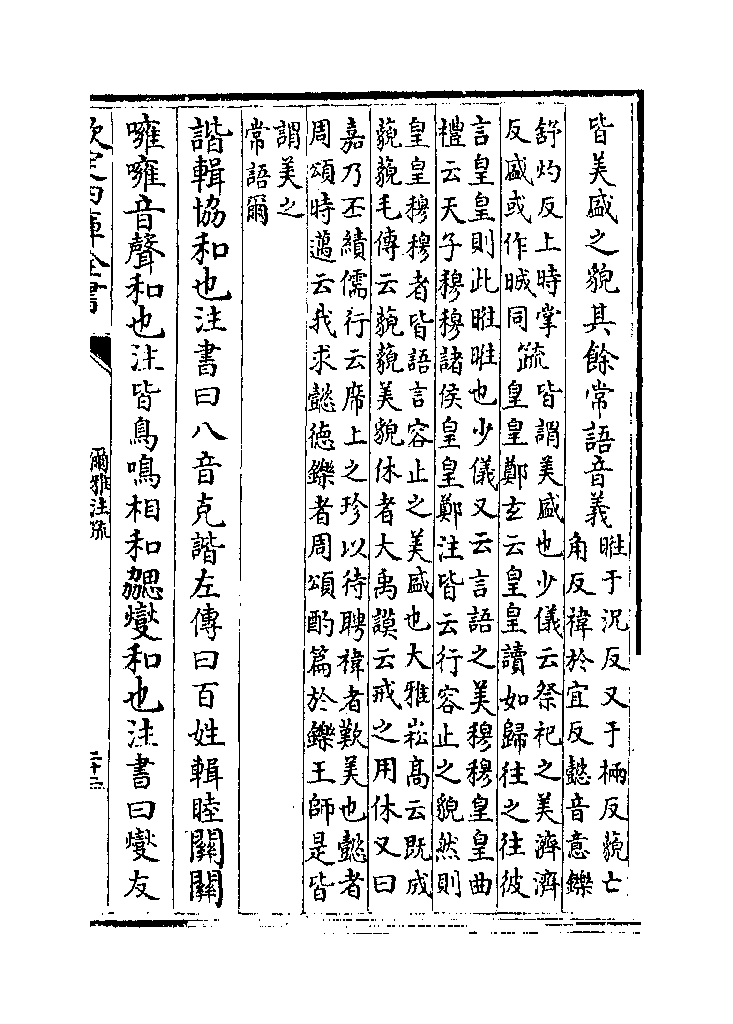 皆美盛之貌其餘常語音義
暀于況反又于柄反藐亡
角反禕於宜反懿音意鑠
舒灼反上時掌
反盛或作晠同
疏
皆謂美盛也少儀云祭祀之美濟濟
皇皇鄭玄云皇皇讀如歸往之往彼
言皇皇則此暀暀也少儀又云言語之美穆穆皇皇曲
禮云天子穆穆諸侯皇皇鄭注皆云行容止之貌然則
皇皇穆穆者皆語言容止之美盛也大雅崧高云既成
藐藐毛傳云藐藐美貌休者大禹謨云戒之用休又曰
嘉乃丕績儒行云席上之珍以待聘禕者歎美也懿者
周頌時邁云我求懿德鑠者周頌酌篇於鑠王師是皆
謂美之
常語爾
諧輯協和也注書曰八音克諧左傳曰百姓輯睦關關
噰噰音聲和也注皆鳥鳴相和勰燮和也注書曰燮友
欽定四庫全書
爾雅注疏